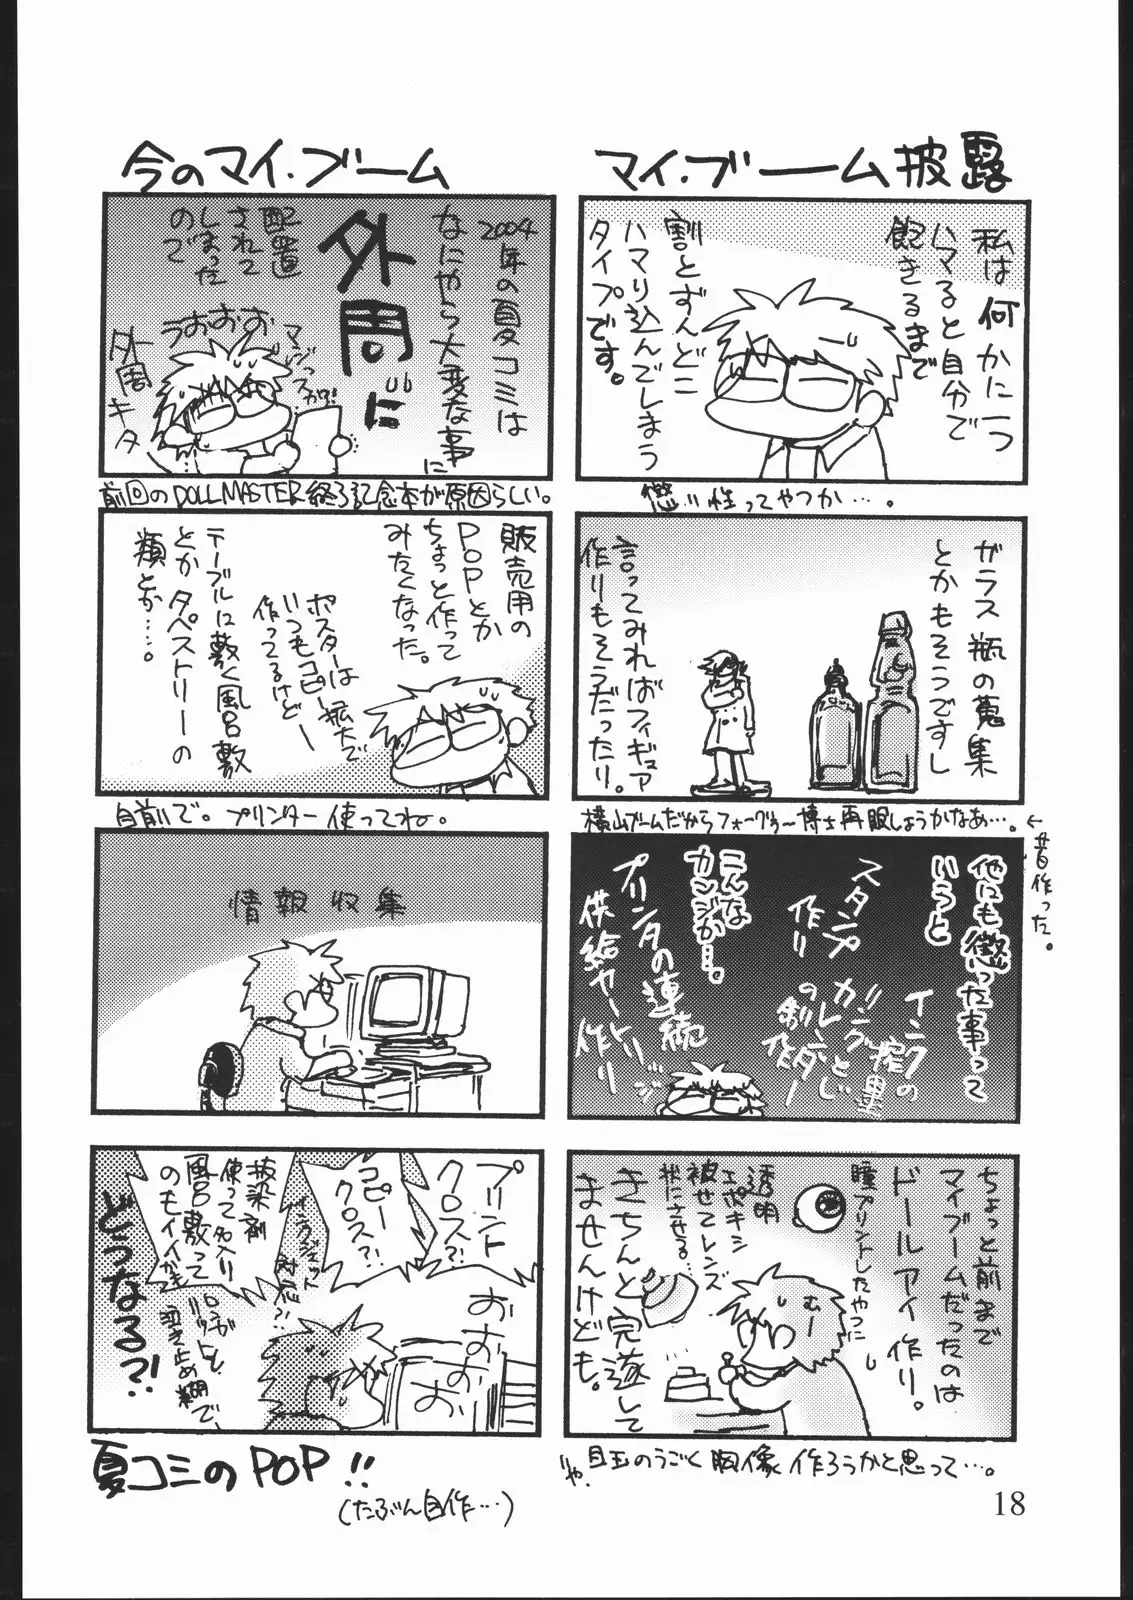 マイ・ブーム披露
私は何かにつ
ハマると自分で
飽きるまで
割とずんどこ
ハマり込んでしまう
タイプです。
性ってやつか…。
ガラス瓶の蒐集
とかもそうですし
言ってみればフィギュア
作りもそうだったり。
横山ブームだからフォーグラー博士再販しようかなあ…。
←昔作った。
他にも懲った事って
いうと
インクの
スタンプ
作り
カレンダー
こんな
カンジか…。
プリンタの連続
供給ヤードリッジ
作り
ちょっと前まで
マイブームだったのは
ドールアイ作り。
瞳プリントしたやつに
透明
エポキシ
被せてレンズ
状にさせる…
むー
きちんと完遂して
ませんけども。
目玉のうごく胸像作ろうかと思って…。
今のマイ・ブーム
2004年の夏コミは
なにやら大変な事に
外周に
配置
されて
しまった
ので
うおおお
外周キタ
前回のDOLLMASTER終了記念本が原因らしい。
販売用の
POPとか
ちょっと作って
みたくなった。
ポスターは拡大で
いつもコピー
作ってるけどー
テーブルに敷く風呂敷
とかタペストリーの
類とか……。
自前で。プリンター使ってね。
情報収集
プリント
クロス?!
コピー
クロス?!
インクジェット
対応?!
抜染剤
使って名入り
風呂敷って
のもイイかも
おおおお
どうなる?!
夏コミのPOP!!
(たぶん自作…)
18